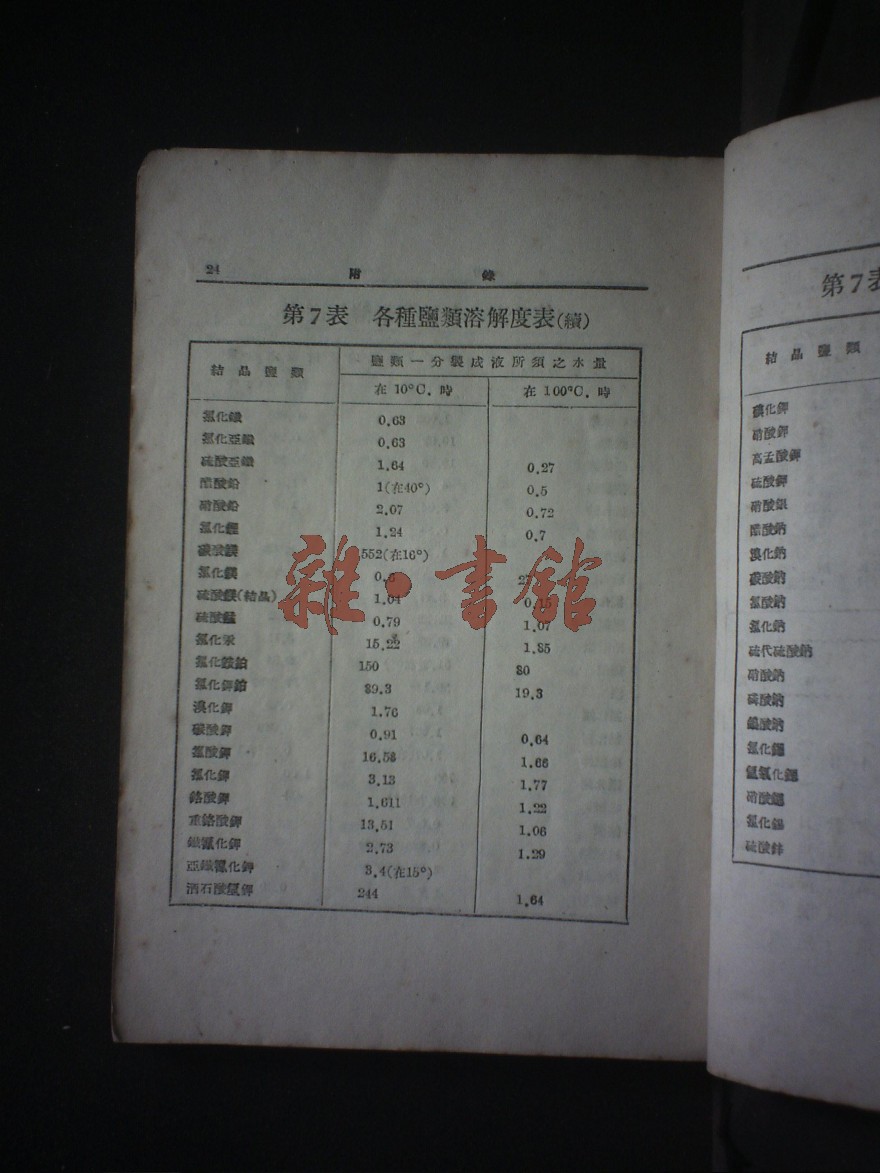 24 附 錄
第7表 各種鹽類溶解度表(續)
結晶鹽類 鹽類一分製成液所須之水量
在 10°C. 時 在 100°C. 時
氯化鐵 0.63
氯化亞鐵 0.63
硫酸亞鐵 1.64 0.27
醋酸鉛 1(在40°) 0.5
硝酸鉛 2.07 0.72
氯化鋰 1.24 0.7
碳酸鎂 5552(在16°)
氯化鎂 0.6 27
硫酸鎂(結晶) 1.04 0.15
硫酸錳 0.79 1.07
氯化汞 15.22 1.85
氯化銨鉑 150 80
氯化鉀鉑 89.3 19.3
溴化鉀 1.76
碳酸鉀 0.91 0.64
氯酸鉀 16.58 1.66
氯化鉀 3.13 1.77
鉻酸鉀 1.611 1.22
重鉻酸鉀 13.51 1.06
鐵氰化鉀 2.73 1.29
亞鐵氰化鉀 3.4(在15°)
酒石酸氫鉀 244 1.64
雜·書館
第7表
結晶鹽類
碘化鉀
硝酸鉀
高孟酸鉀
硫酸鉀
硝酸銀
醋酸鈉
溴化鈉
碳酸鈉
氯酸鈉
氯化鈉
硫代硫酸鈉
硝酸鈉
磷酸鈉
鎢酸鈉
氯化鍶
氫氧化鍶
硝酸鍶
氯化錫
硫酸鋅